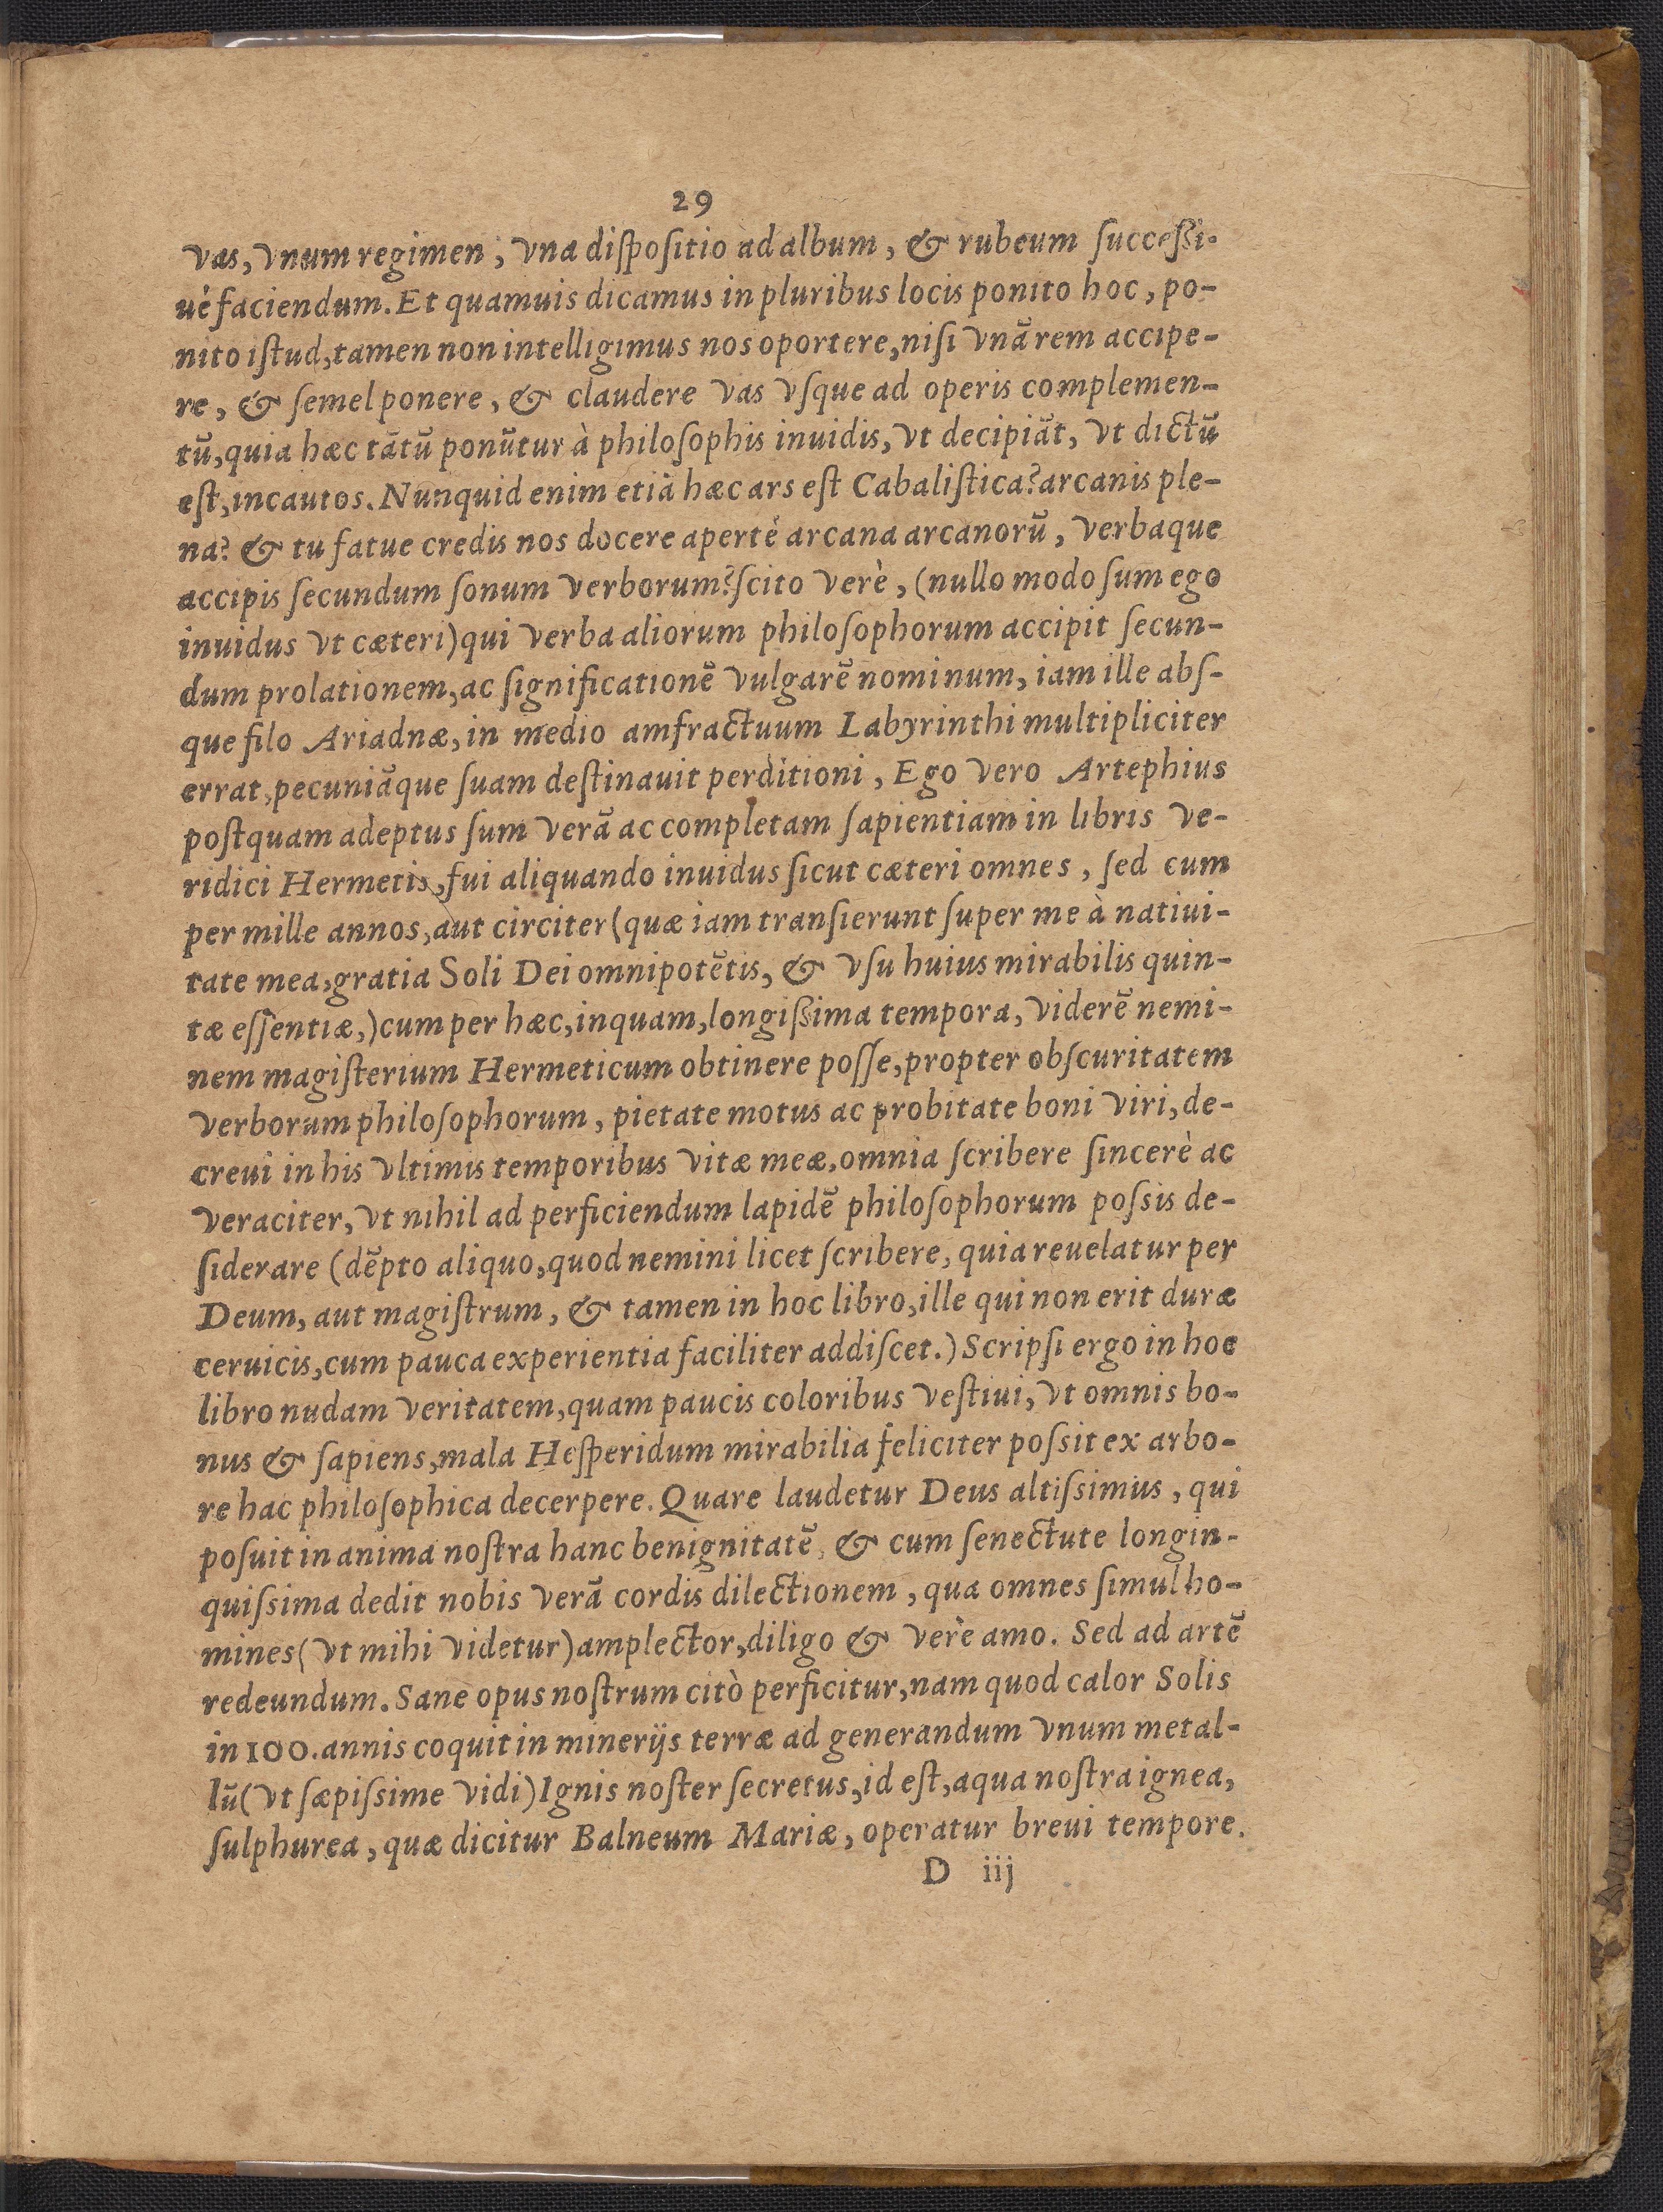 29
vas, vnum regimen, vna diſpoſitio ad album, & rubeum ſucceßi-
uè faciendum. Et quamuis dicamus in pluribus locis ponito hoc, po-
nito iſtud, tamen non intelligimus nos oportere, niſi vnã rem accipe-
re, & ſemel ponere, & claudere vas vſque ad operis complemen-
tũ, quia hæc tãtũ ponũtur à philoſophis inuidis, vt decipiãt, vt dictũ
eſt, incautos. Nunquid enim etiã hæc ars eſt Cabaliſtica? arcanis ple-
na? & tu fatue credis nos docere apertè arcana arcanorũ, verbaque
accipis ſecundum ſonum verborum? ſcito verè, (nullo modo ſum ego
inuidus vt cæteri) qui verba aliorum philoſophorum accipit ſecun-
dum prolationem, ac ſignificationẽ vulgarẽ nominum, iam ille abſ-
que filo Ariadnæ, in medio amfractuum Labyrinthi multipliciter
errat, pecuniãque ſuam deſtinauit perditioni, Ego vero Artephius
poſtquam adeptus ſum verã ac completam ſapientiam in libris ve-
ridici Hermetis, fui aliquando inuidus ſicut cæteri omnes, ſed cum
per mille annos, aut circiter (quæ iam tranſierunt ſuper me à natiui-
tate mea, gratia Soli Dei omnipotẽtis, & vſu huius mirabilis quin-
tæ eſſentiæ,) cum per hæc, inquam, longißima tempora, viderẽ nemi-
nem magiſterium Hermeticum obtinere poſſe, propter obſcuritatem
verborum philoſophorum, pietate motus ac probitate boni viri, de-
creui in his vltimis temporibus vitæ meæ, omnia ſcribere ſincerè ac
veraciter, vt nihil ad perficiendum lapidẽ philoſophorum poſsis de-
ſiderare (dẽpto aliquo, quod nemini licet ſcribere, quia reuelatur per
Deum, aut magiſtrum, & tamen in hoc libro, ille qui non erit duræ
ceruicis, cum pauca experientia faciliter addiſcet.) Scripſi ergo in hoc
libro nudam veritatem, quam paucis coloribus veſtiui, vt omnis bo-
nus & ſapiens, mala Heſperidum mirabilia feliciter poſsit ex arbo-
re hac philoſophica decerpere. Quare laudetur Deus altiſsimus, qui
poſuit in anima noſtra hanc benignitatẽ, & cum ſenectute longin-
quiſsima dedit nobis verã cordis dilectionem, qua omnes ſimul ho-
mines (vt mihi videtur) amplector, diligo & verè amo. Sed ad artẽ
redeundum. Sane opus noſtrum citò perficitur, nam quod calor Solis
in 100. annis coquit in minerijs terræ ad generandum vnum metal-
lũ (vt ſæpiſsime vidi) Ignis noſter ſecretus, id eſt, aqua noſtra ignea,
ſulphurea, quæ dicitur Balneum Mariæ, operatur breui tempore.
D iij